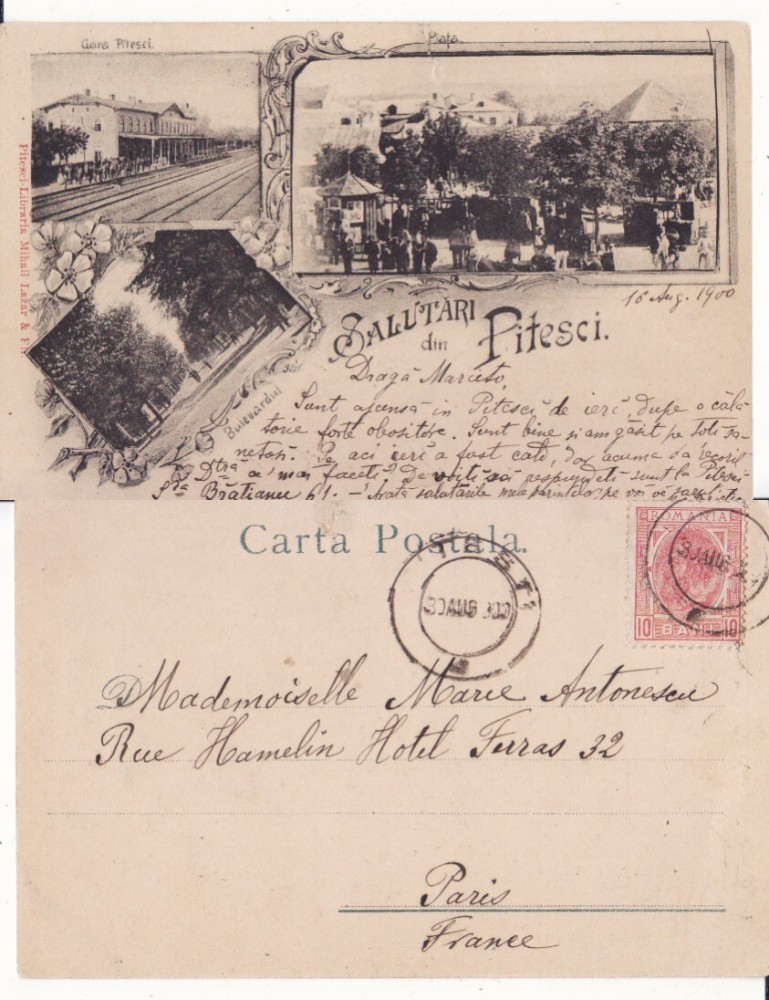 Gara Pitesci.
Piața.
Pitesci-Libraria Mihail Lazăr & Fii.
Bulevardul
16 Aug. 1900
SALUTĂRI
din Pitesci.
Dragă Marieto,
Sunt ajunsă in Pitesci de ieri, dupe o călă
torie forte obositore. Sunt bine și am găsit pe toti sa-
netosi. Pe aci ieri a fost cald, dar acuma sa recorit
D-tră ce mai faceti? De voiti să respundeti sunt la Pitesci
Sda Brătianu 61. – Arată salutările mele parintelor, pe voi ve
Carta Postala.
30 AUG 900
ROMANIA
30 AUG
10 BANI 10
Mademoiselle Marie Antonescu
Rue Hamelin Hotel Ferras 32
Paris
France